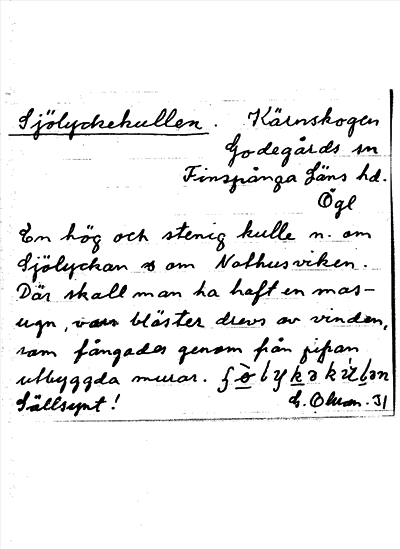 Sjölyckekullen. Kärnskogen
Godegårds sn
Finspånga Läns hd.
Ögl
En hög och stenig kulle n. om
Sjölyckan o om Nothusviken.
Där skall man ha haft en mas-
ugn, vars bläster drevs av vinden,
som fångades genom från pipan
utbyggda murar.
Sällsynt! G. Olson. 31